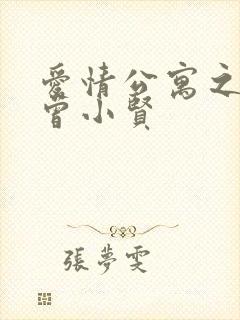 愛情公寓之
曾小賢
張夢雯